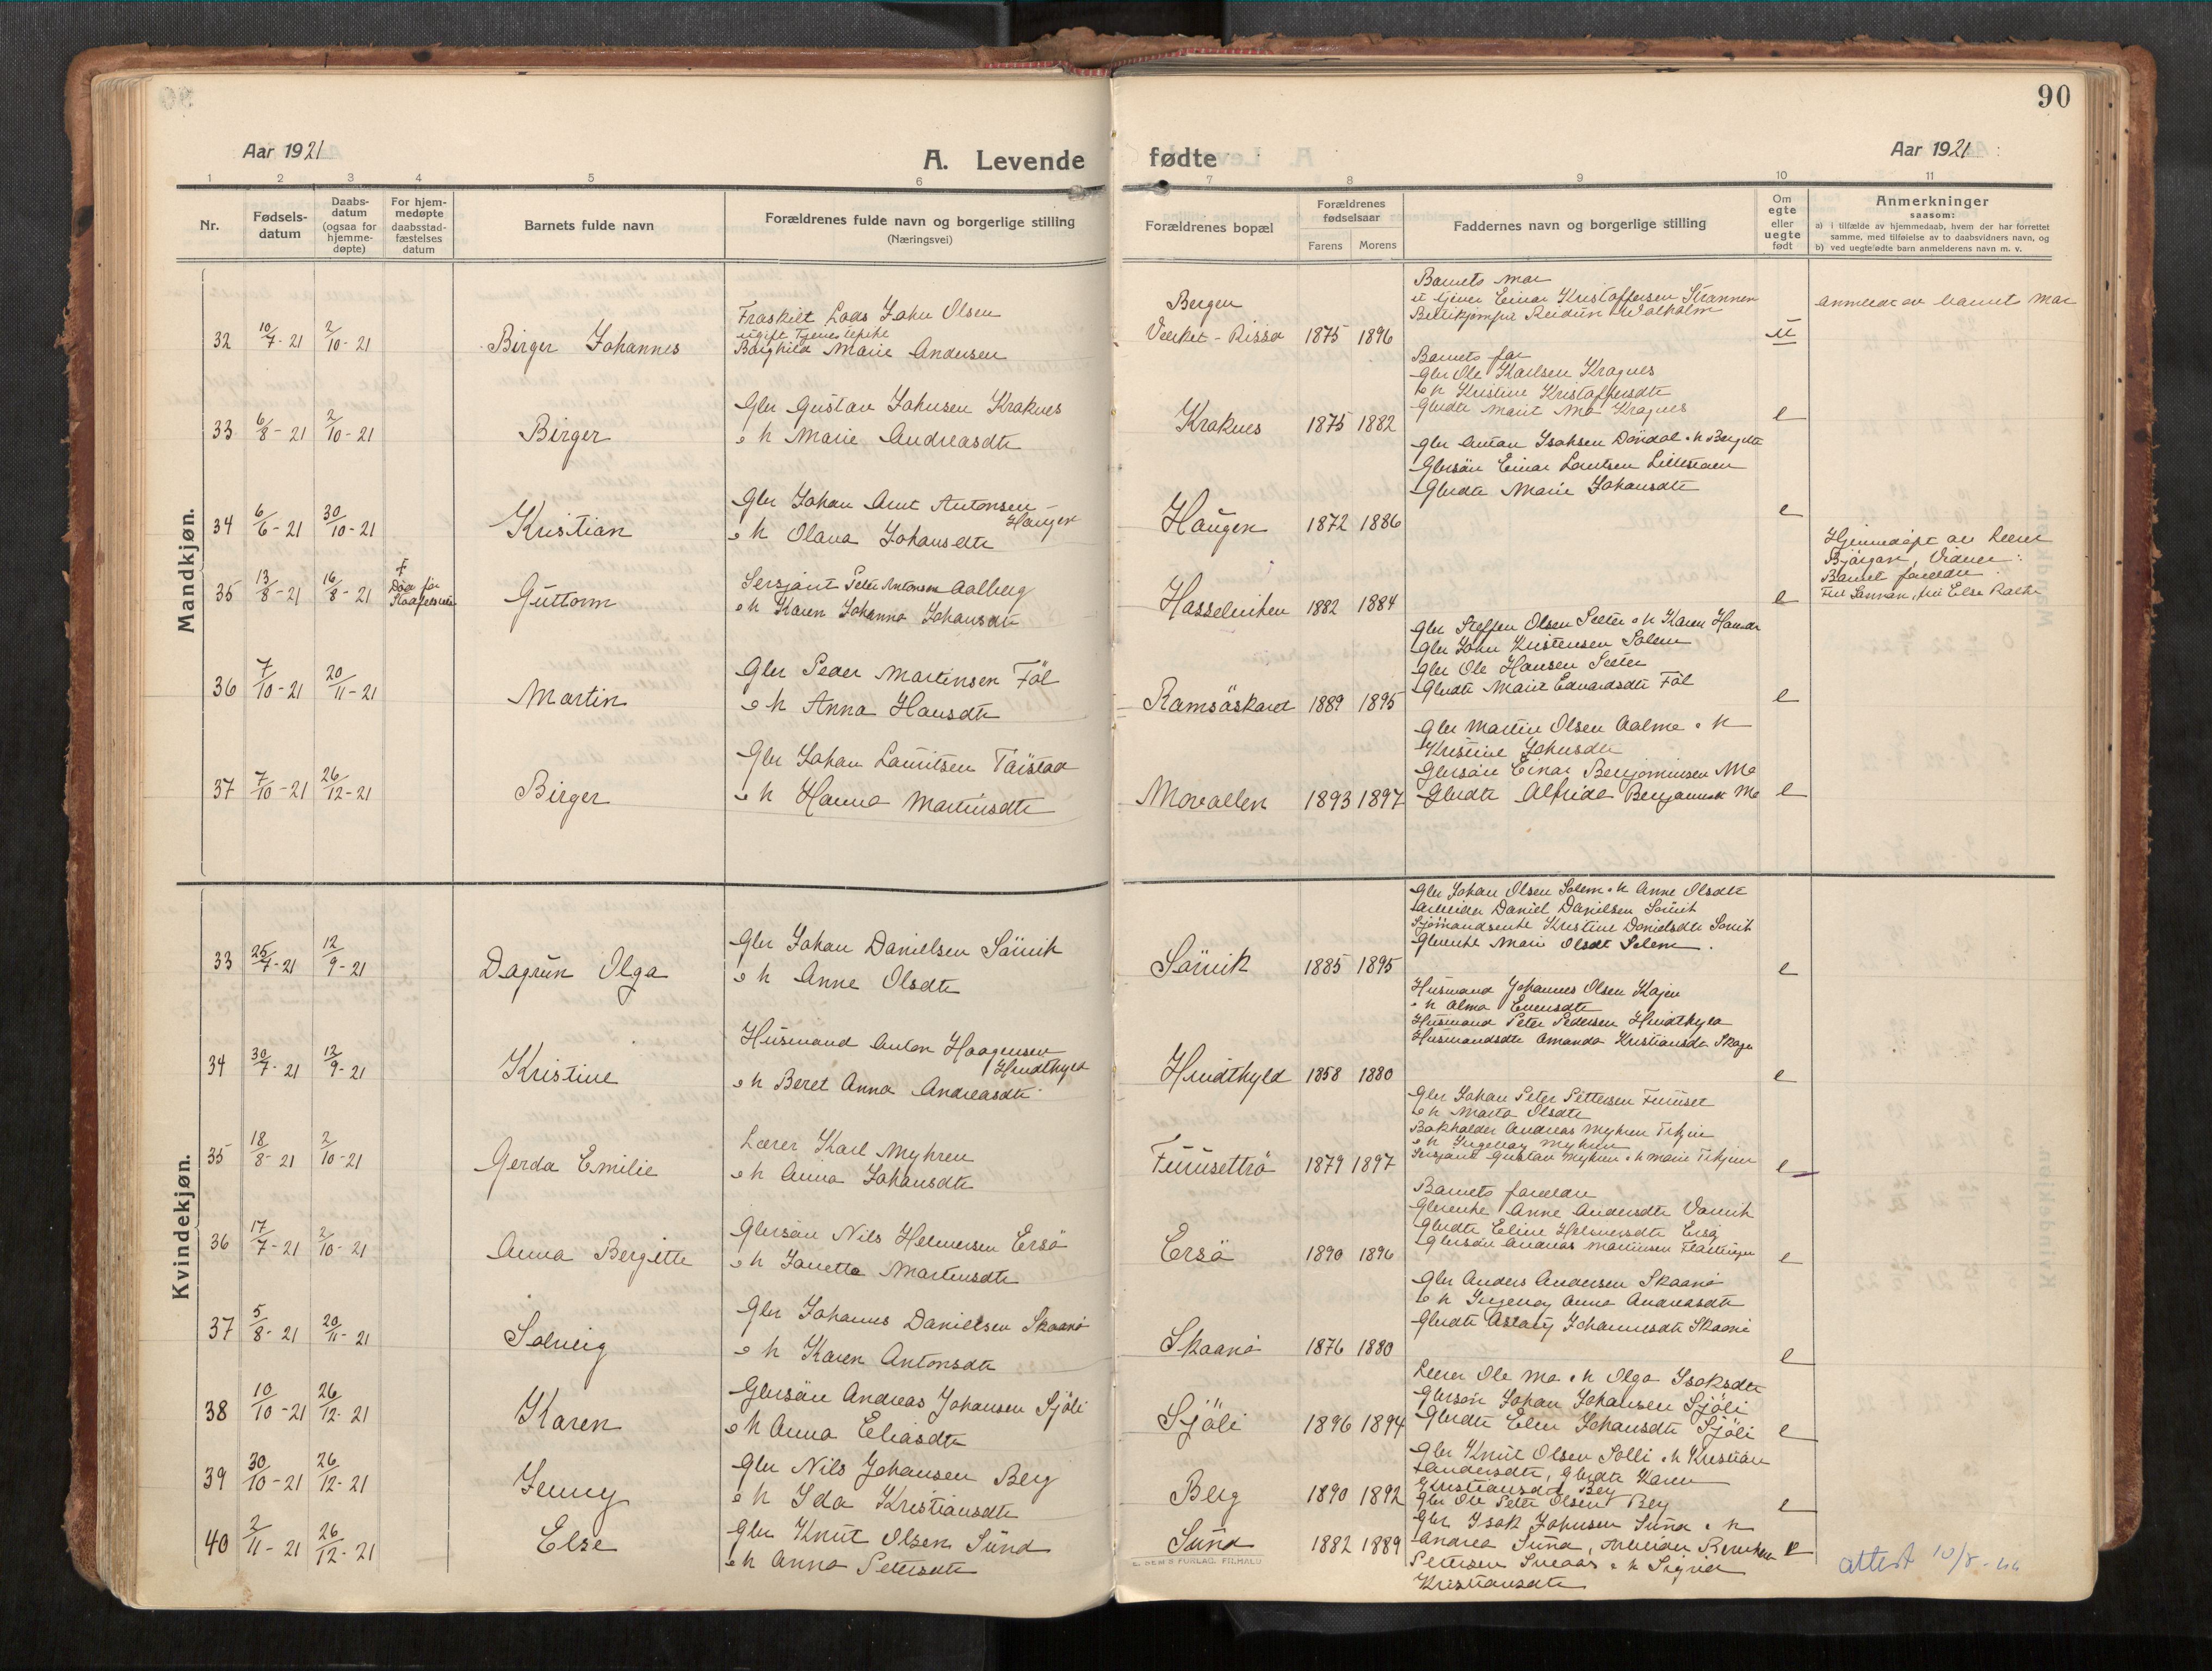 90
Aar 1921
A. Levende fødte
Aar 1921
1 2 3 4 5 6 7 8 9 10 11
Nr.
Fødsels-
datum
Daabs-
datum
(ogsaa for
hjemme-
døpte)
For hjem-
medøpte
daabsstad-
fæstelses
datum
Barnets fulde navn
Forældrenes fulde navn og borgerlige stilling
(Næringsvei)
Forældrenes bopæl
Forældrenes
fødselsaar
Farens Morens
Faddernes navn og borgerlige stilling
Om
egte
eller
uegte
født
Anmerkninger
saasom:
a) i tilfælde av hjemmedaab, hvem der har forrettet
samme, med tilføielse av to daabsvidners navn, og
b) ved uegte fødte barn anmelderens navn m. v.
Mandkjøn.
32 10/7-21 2/10-21 Birger Johannes
Fraskilt Lods John Olsen
ugift
Borghild Marie Andersen
Bergen
Rissa 1875 1896
Barnets mor
Einar Kristoffersen
u
anmeldt av barnets mor
33 6/8-21 2/10-21 Birger
Gbr Gustav Johnsen Kraknes
o h Marie Andreasdtr
Kraknes 1875 1882
Barnets far
Gbr Ole Karlsen Kragnes
o h Kristine Kristoffersdtr
Gbrdtr Marit Mo Kragnes
e
34 6/6-21 30/10-21 Kristian
Gbr Johan Arnt Antonsen
Haugen
o h Olava Johansdtr
Haugen 1872 1886
Gbr Anton Isaksen Döndal o h Bergitte
Gbrsön Einar Lauritsen
Gbrdtr Marie Johansdtr
e
35 13/8-21 16/8-21
Död før
Guttorm
Sersjant Peter Antonsen Aalberg
o h Karen Johanna Johansdtr
Hasselviken 1882 1884
e
Hjemmedöpt av Lærer
Vidner:
Barnets foreldre
36 7/10-21 20/11-21 Martin
Gbr Peder Martinsen Föl
o h Anna Hansdtr
Ramsöskaret 1889 1895
Gbr Steffen Olsen Sæter o h Karen
Gbr John Kristensen Solem
Gbr Ole Hansen Sæter
Gbrdtr Marit Edvardsdtr Föl
e
37 7/10-21 26/12-21 Birger
Gbr Johan Lauritsen
o h Hanna Martinsdtr
Movallen 1893 1897
Gbr Martin Olsen Aalmo o h
Kristine Johnsdtr
Gbrsön Einar Benjaminsen Mo
Gbrdtr Alfrida Benjaminsdtr Mo
e
Kvindekjøn.
33 25/7-21 12/9-21 Dagrun Olga
Gbr Johan Danielsen Sörvik
o h Anne Olsdtr
Sörvik 1885 1895
Gbr Johan Olsen Solem o h Anne Olsdtr
Arbeider Daniel Danielsen Sörvik
Sjömandsenke Kristine Danielsdtr Sörvik
Gbrenke Marie Olsdtr Solem.
e
34 30/7-21 12/9-21 Kristine
Husmand Anton Haagensen
o h Beret Anna Andreasdtr
1858 1880
Husmand Johannes Olsen
o h Alma
Husmand Peter Pedersen
Husmandsdtr Amanda Kristiansdtr
e
35 18/8-21 2/10-21 Gerda Emilie
Lærer Karl Myhren
o h Anna Johansdtr
Furusettrö 1879 1897
Gbr Johan Peter Pettersen Furuset
o h Marta Olsdtr
Bokholder Andreas Myhren
o h Ingeborg Myhren
Sersjant Gustav Myhren o h Marie
e
36 17/7-21 2/10-21 Anna Bergitte
Gbrsön Nils Helmersen Ersö
o h Janetta Martinsdtr
Ersö 1890 1896
Barnets foreldre
Gbrenke Anne Andersdtr
Gbrdtr Eline Helmersdtr Ersö
Gbrsön Andreas Martinsen
e
37 5/8-21 20/11-21 Solveig
Gbr Johannes Danielsen Skaanö
o h Karen Antonsdtr
Skaanö 1876 1880
Gbr Anders Andersen Skaanö
o h Ingeborg Anna Andreasdtr
Gbrdtr Aslaug Johannesdtr Skaanö
e
38 10/10-21 26/12-21 Karen
Gbrsön Andreas Johansen Sjöli
o h Anna Eliasdtr
Sjöli 1896 1894
Lærer Ole Mo o h Olga Isaksdtr
Gbrsön Johan Johansen Sjöli
Gbrdtr Elen Johansdtr Sjöli
e
39 30/10-21 26/12-21 Jenny
Gbr Nils Johansen Berg
o h Ida Kristiansdtr
Berg 1890 1892
Gbr Knut Olsen Solli o h Kristian
Andersdtr, Gbrdtr Karen
Kristiansdtr Berg
Gbr Ole Peter Olsen Berg
e
40 2/11-21 26/12-21 Else
Gbr Knut Olsen Sund
o h Anna Petersdtr
Sund 1882 1889
Gbr Isak Johnsen Sund o h
Andrea Sund, Arbeider
Pettersen o h Sigrid
Kristiansdtr
e
attest 10/8-44